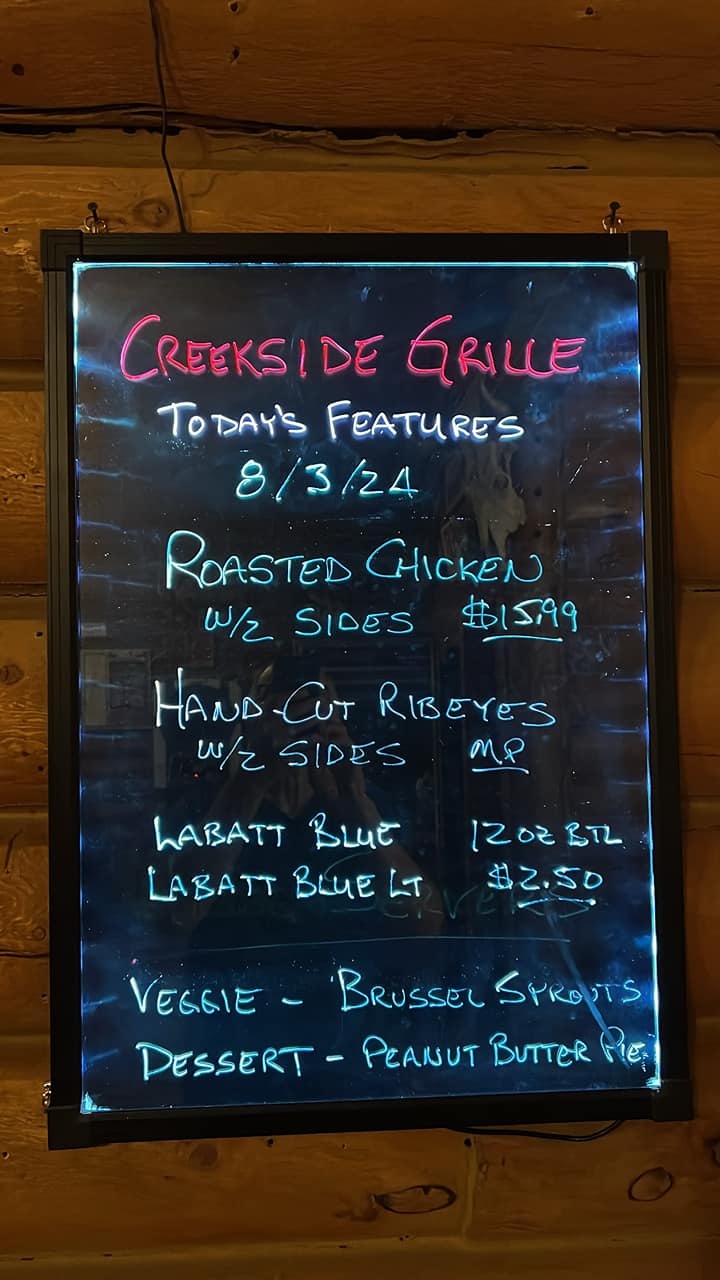 CREEKSIDE GRILLE
TODAY'S FEATURES
8/3/24
ROASTED CHICKEN
W/2 SIDES $15.99
HAND-CUT RIBEYES
W/2 SIDES MP
LABATT BLUE 12 OZ BTL
LABATT BLUE LT $2.50
VEGGIE - BRUSSEL SPROUTS
DESSERT - PEANUT BUTTER PIE